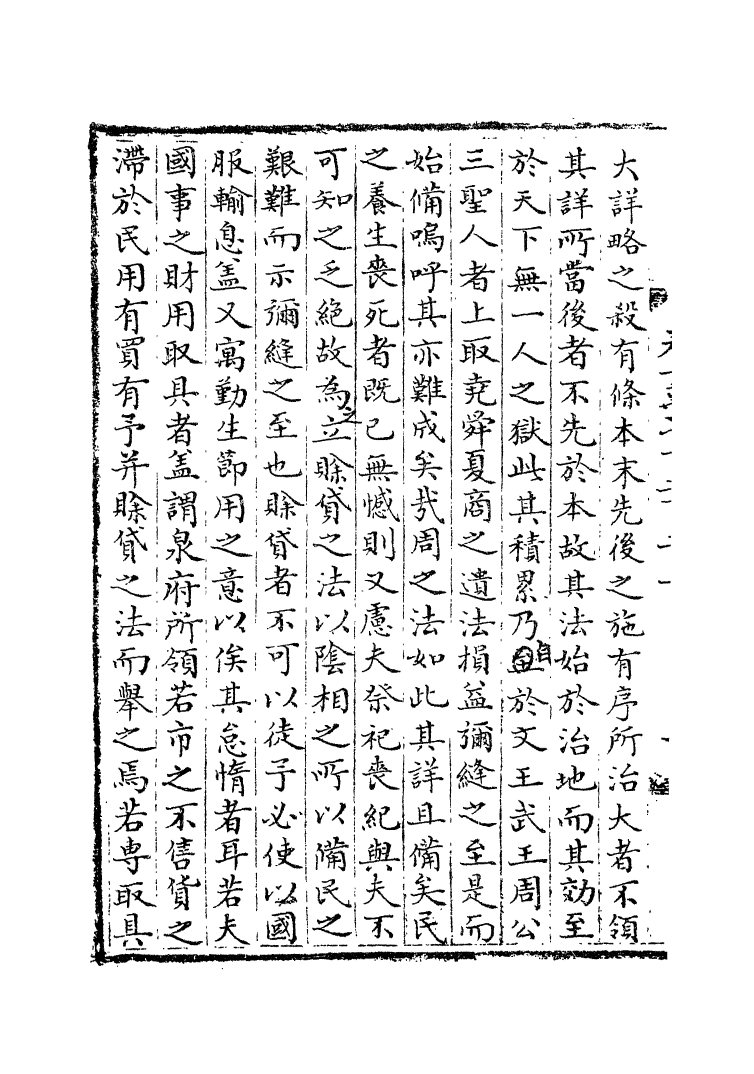 大詳略之殺有條本末先後之施有序所治大者不領
其詳所當後者不先於本故其法始於治地而其効至
於天下無一人之獄此其積累乃自於文王武王周公
三聖人者上取堯舜夏商之遺法損益彌縫之至是而
始備嗚呼其亦難成矣㢤周之法如此其詳且備矣民
之養生喪死者既已無憾則又慮夫祭祀喪紀與夫不
可知之乏絕故為之立賖貸之法以陰相之所以備民之
艱難而示彌縫之至也賖貸者不可以徒予必使以國
服輸息盖又寓勤生節用之意以俟其怠惰者耳若夫
國事之財用取具者盖謂泉府所領若市之不售貨之
滯於民用有買有予并賖貸之法而舉之焉若専取具